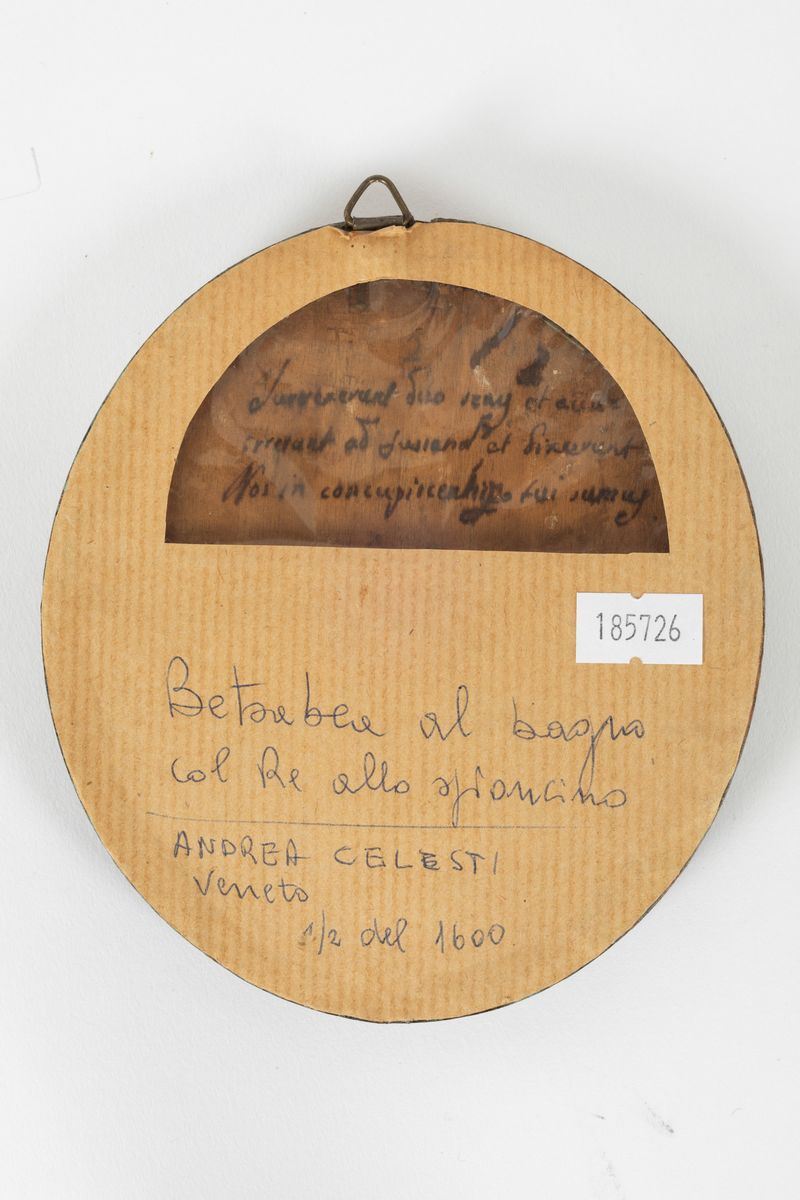 Surrexerunt duo senes et accur
rerant ad et dixerunt
Nos in tui sumus
185726
Betsabea al bagno
col Re allo spioncino
ANDREA CELESTI
Veneto
1/2 del 1600